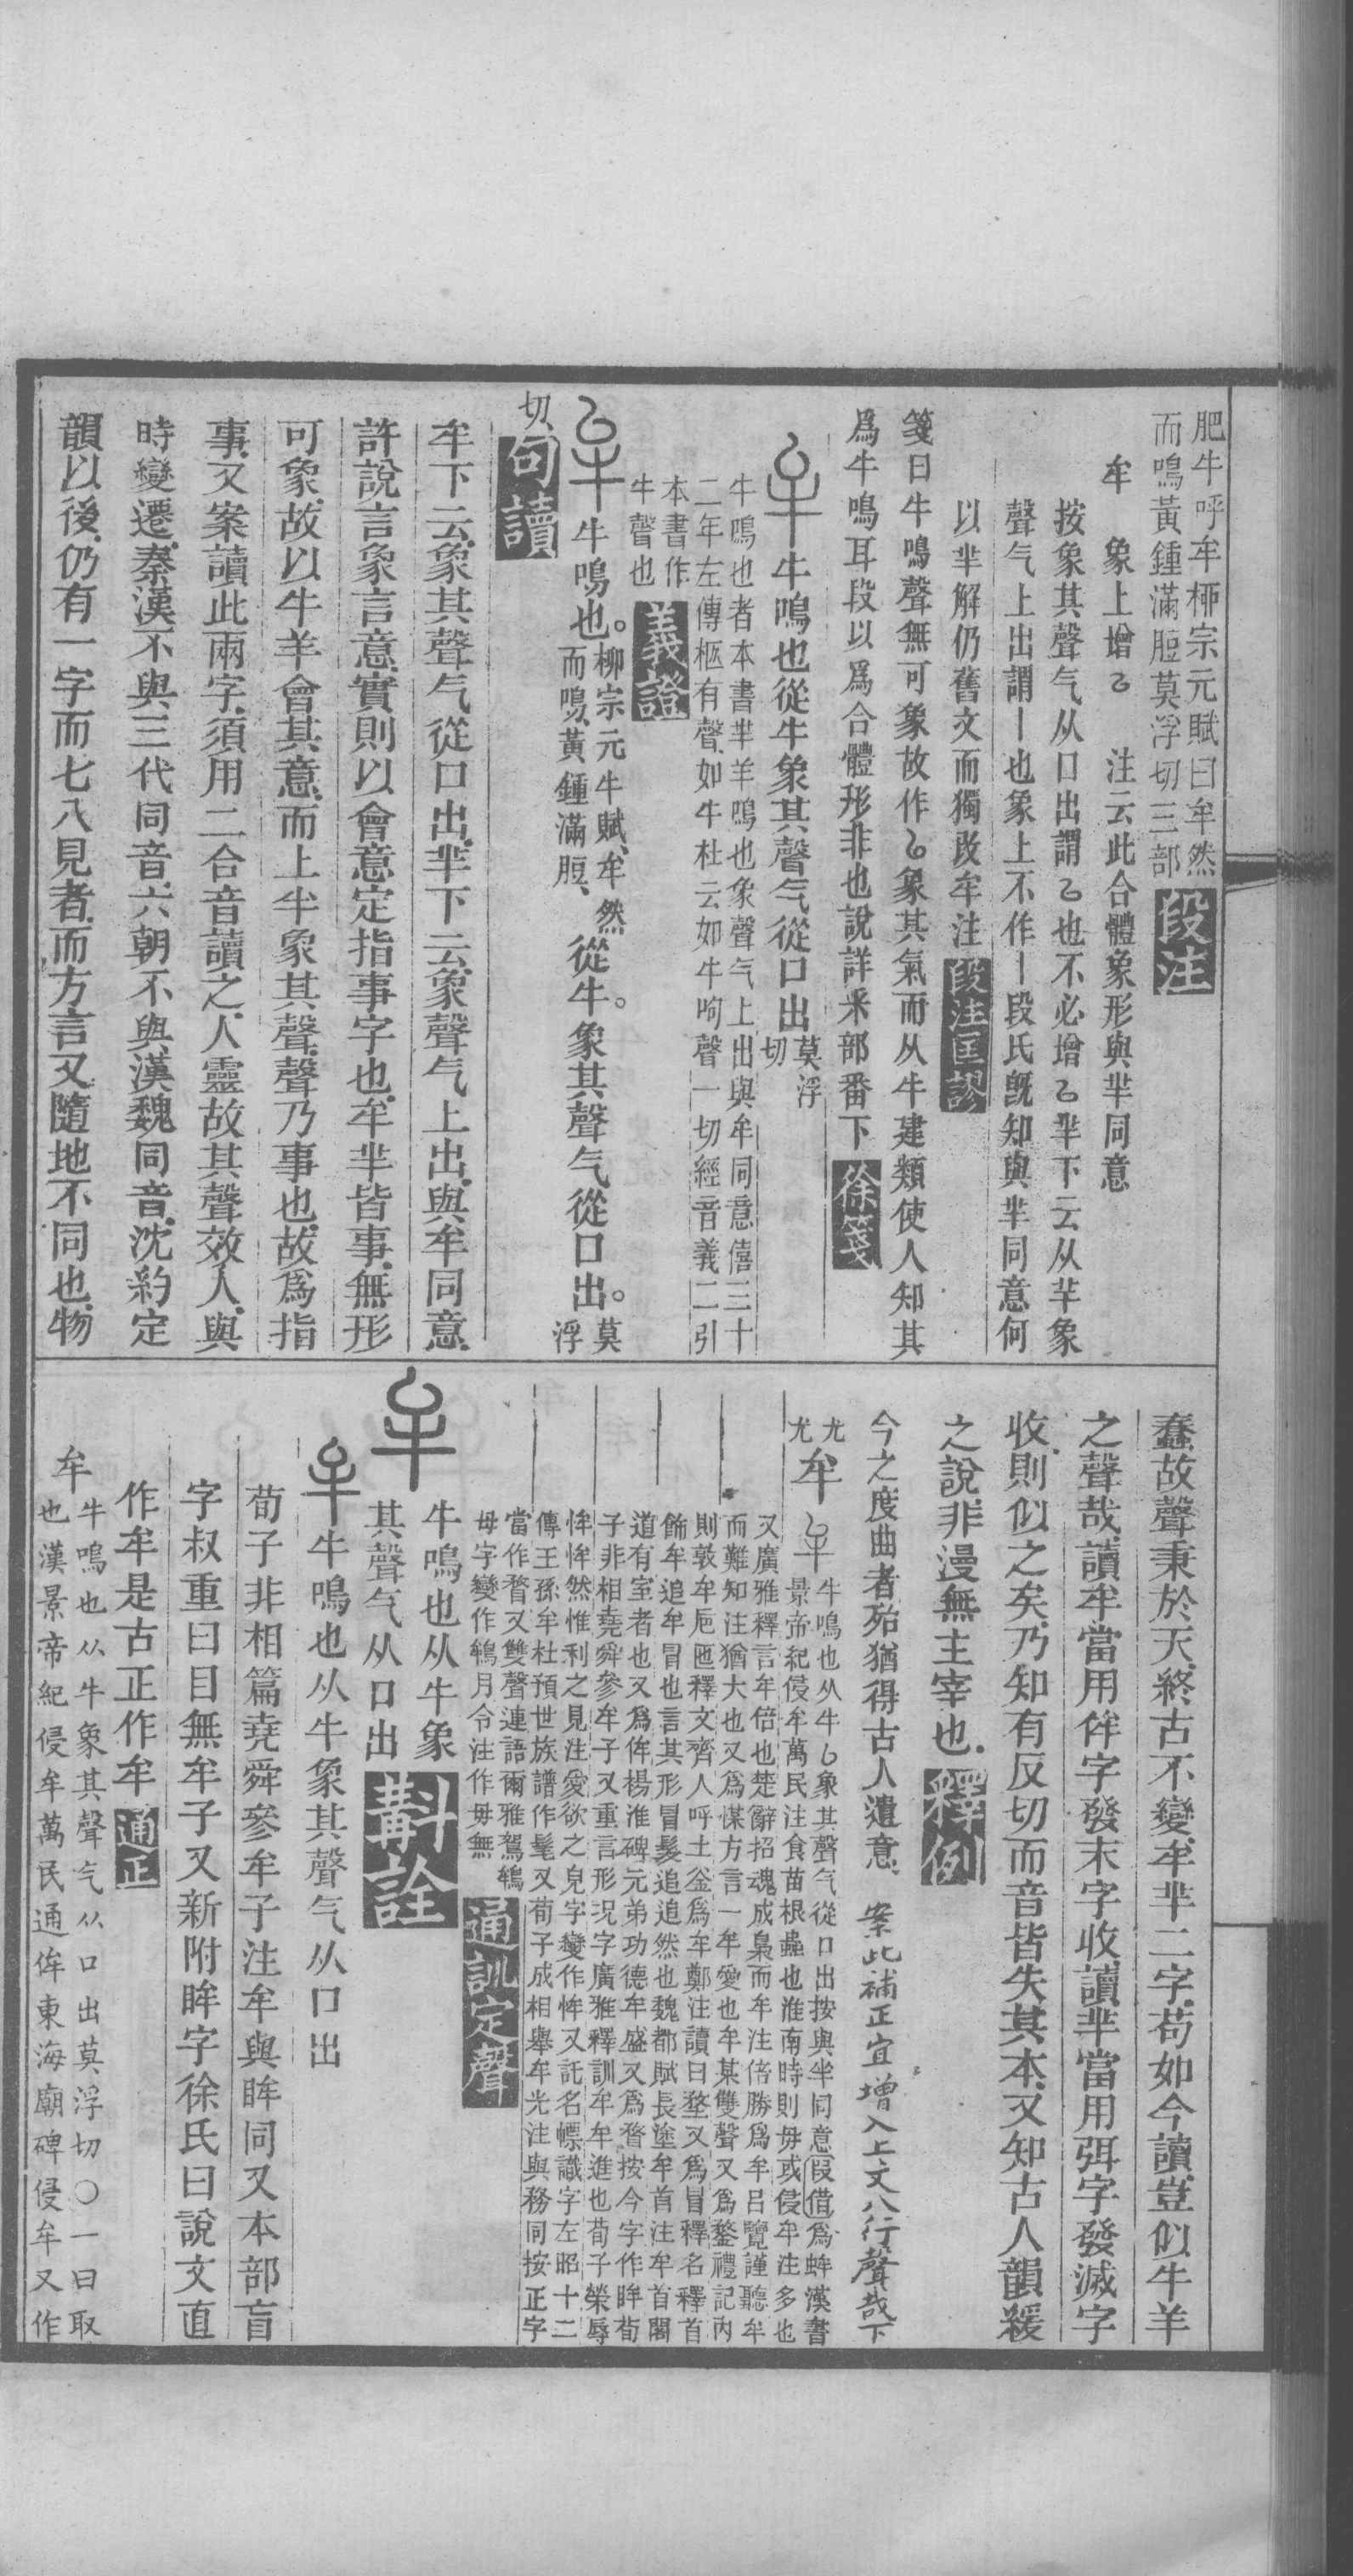 肥牛呼牟柳宗元賦曰牟然
而鳴黃鍾滿脰莫浮切三部 段注
牟　象上增𠃉　注云此合體象形與芈同意
按象其聲气从口出謂𠃉也不必增𠃉芈下云从羊象
聲气上出謂丨也象上不作丨段氏既知與芈同意何
以芈解仍舊文而獨改牟注 段注匡謬
箋曰牛鳴聲無可象故作𠃉象其氣而从牛建類使人知其
爲牛鳴耳段以爲合體形非也說詳釆部番下 徐箋
牛鳴也從牛象其聲气從口出 莫浮
切
牛鳴也者本書芈羊鳴也象聲气上出與牟同意僖三十
二年左傳柩有聲如牛杜云如牛呴聲一切經音義二引
本書作
牛聲也 義證
牛鳴也。柳宗元牛賦、牟然
而鳴、黃鍾滿脰、從牛。象其聲气從口出。莫
浮
切 句讀
牟下云象其聲气從口出芈下云象聲气上出與牟同意
許說言象言意實則以會意定指事字也牟芈皆事無形
可象故以牛羊會其意而上半象其聲聲乃事也故爲指
事又案讀此兩字須用二合音讀之人靈故其聲效人與
時變遷秦漢不與三代同音六朝不與漢魏同音沈約定
韻以後仍有一字而七八見者而方言又隨地不同也物
蠢故聲秉於天終古不變牟芈二字苟如今讀豈似牛羊
之聲哉讀牟當用侔字發末字收讀芈當用弭字發滅字
收則似之矣乃知有反切而音皆失其本又知古人韻緩
之說非漫無主宰也 釋例
今之度曲者殆猶得古人遺意　案此補正宜增入上文八行聲哉下
尤
尤 牟 牛鳴也从牛𠃉象其聲气從口出按與芈同意叚借爲蛑漢書
景帝紀侵牟萬民注食苗根蟲也淮南時則毋或侵牟注多也
又廣雅釋言牟倍也楚辭招魂成梟而牟注倍勝爲牟呂覽謹聽牟
而難知注猶大也又爲㦄方言一牟愛也牟某雙聲又爲鍪禮記內
則敦牟卮匜釋文齊人呼土釜爲牟鄭注讀曰堥又爲冒釋名釋首
飾牟追牟冒也言其形冒髮追追然也魏都賦長塗牟首注牟首閣
道有室者也又爲侔楊淮碑元弟功德牟盛又爲瞀按今字作眸荀
子非相堯舜參牟子又重言形況字廣雅釋訓牟牟進也荀子榮辱
恈恈然惟利之見注愛欲之皃字變作恈又託名幖識字左昭十二
傳王孫牟杜預世族譜作髦又荀子成相舉牟光注與務同按正字
當作瞀又雙聲連語爾雅鴽鴾
毋字變作鴾月令注作毋無 通訓定聲
牛鳴也从牛象
其聲气从口出 斠詮
牛鳴也从牛象其聲气从口出
荀子非相篇堯舜參牟子注牟與眸同又本部盲
字叔重曰目無牟子又新附眸字徐氏曰說文直
作牟是古正作牟 通正
牟 牛鳴也从牛象其聲气从口出莫浮切○一曰取
也漢景帝紀侵牟萬民通侔東海廟碑侵牟又作